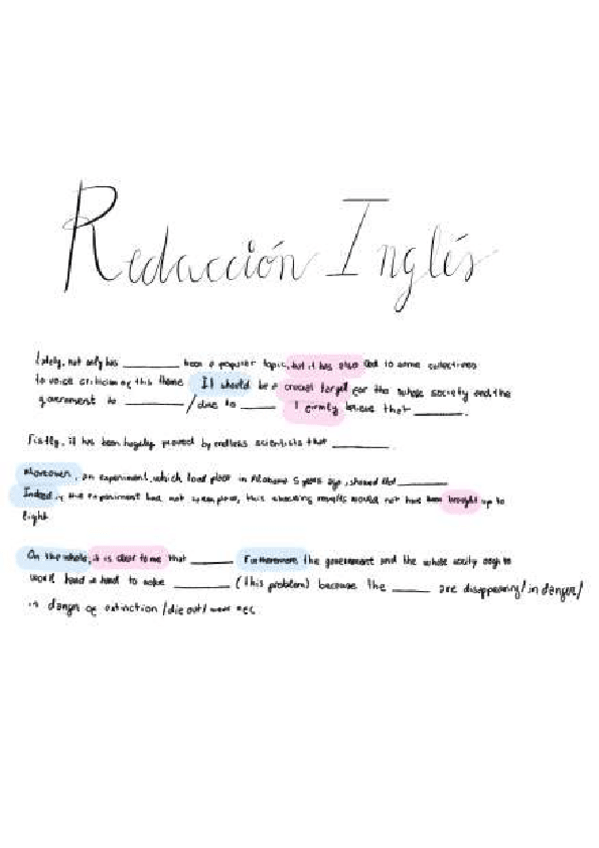 Redacción Inglés
Lately, not only has ________ been a popular topic, but it has also led to some collectives
to voice criticism of this theme. It should be a crucial target for the whole society and the
government to ________ / due to ________ I firmly believe that ________.
Firstly, it has been hugely proved by endless scientists that ________.
Moreover, an experiment, which took place in 5 years ago, showed that ________
Indeed, if the experiment had not taken place, this shocking results would not have been brought up to
light.
On the whole, it is clear to me that ________ Furthermore the government and the whole society ough to
work hand in hand to solve ________ (this problem) because the ________ are disappearing / in danger /
in danger of extinction / die out /